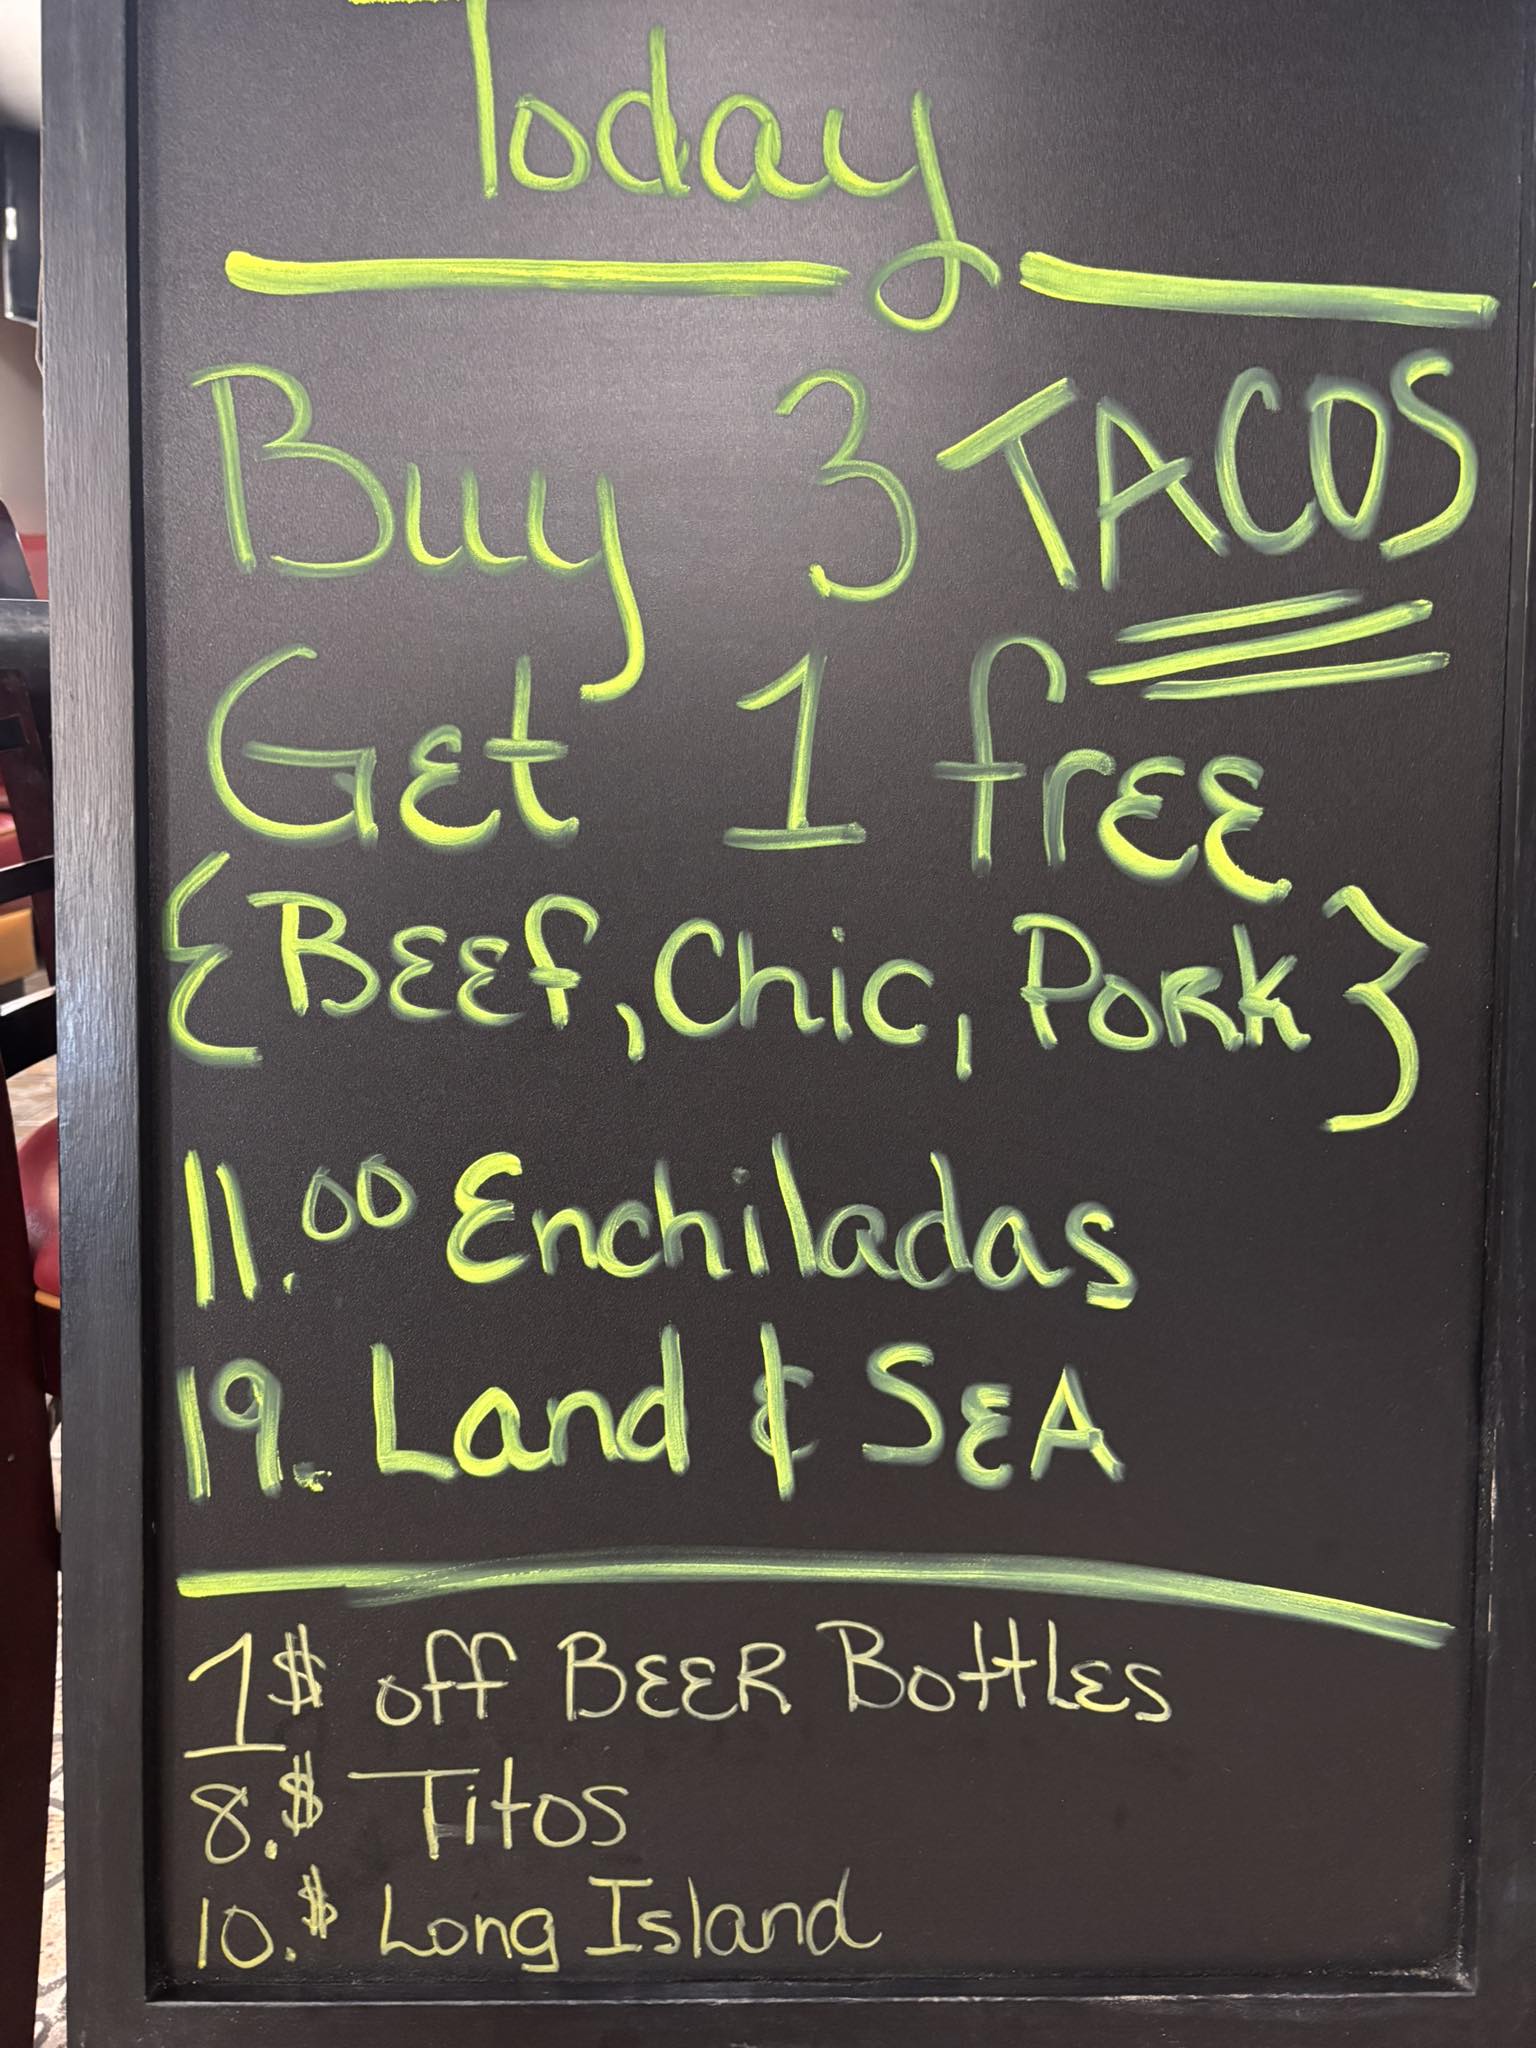 Today
Buy 3 TACOS
Get 1 free
{Beef, Chic, Pork}
11.00 Enchiladas
19. Land & SEA
1$ off BEER Bottles
8.$ Titos
10.$ Long Island